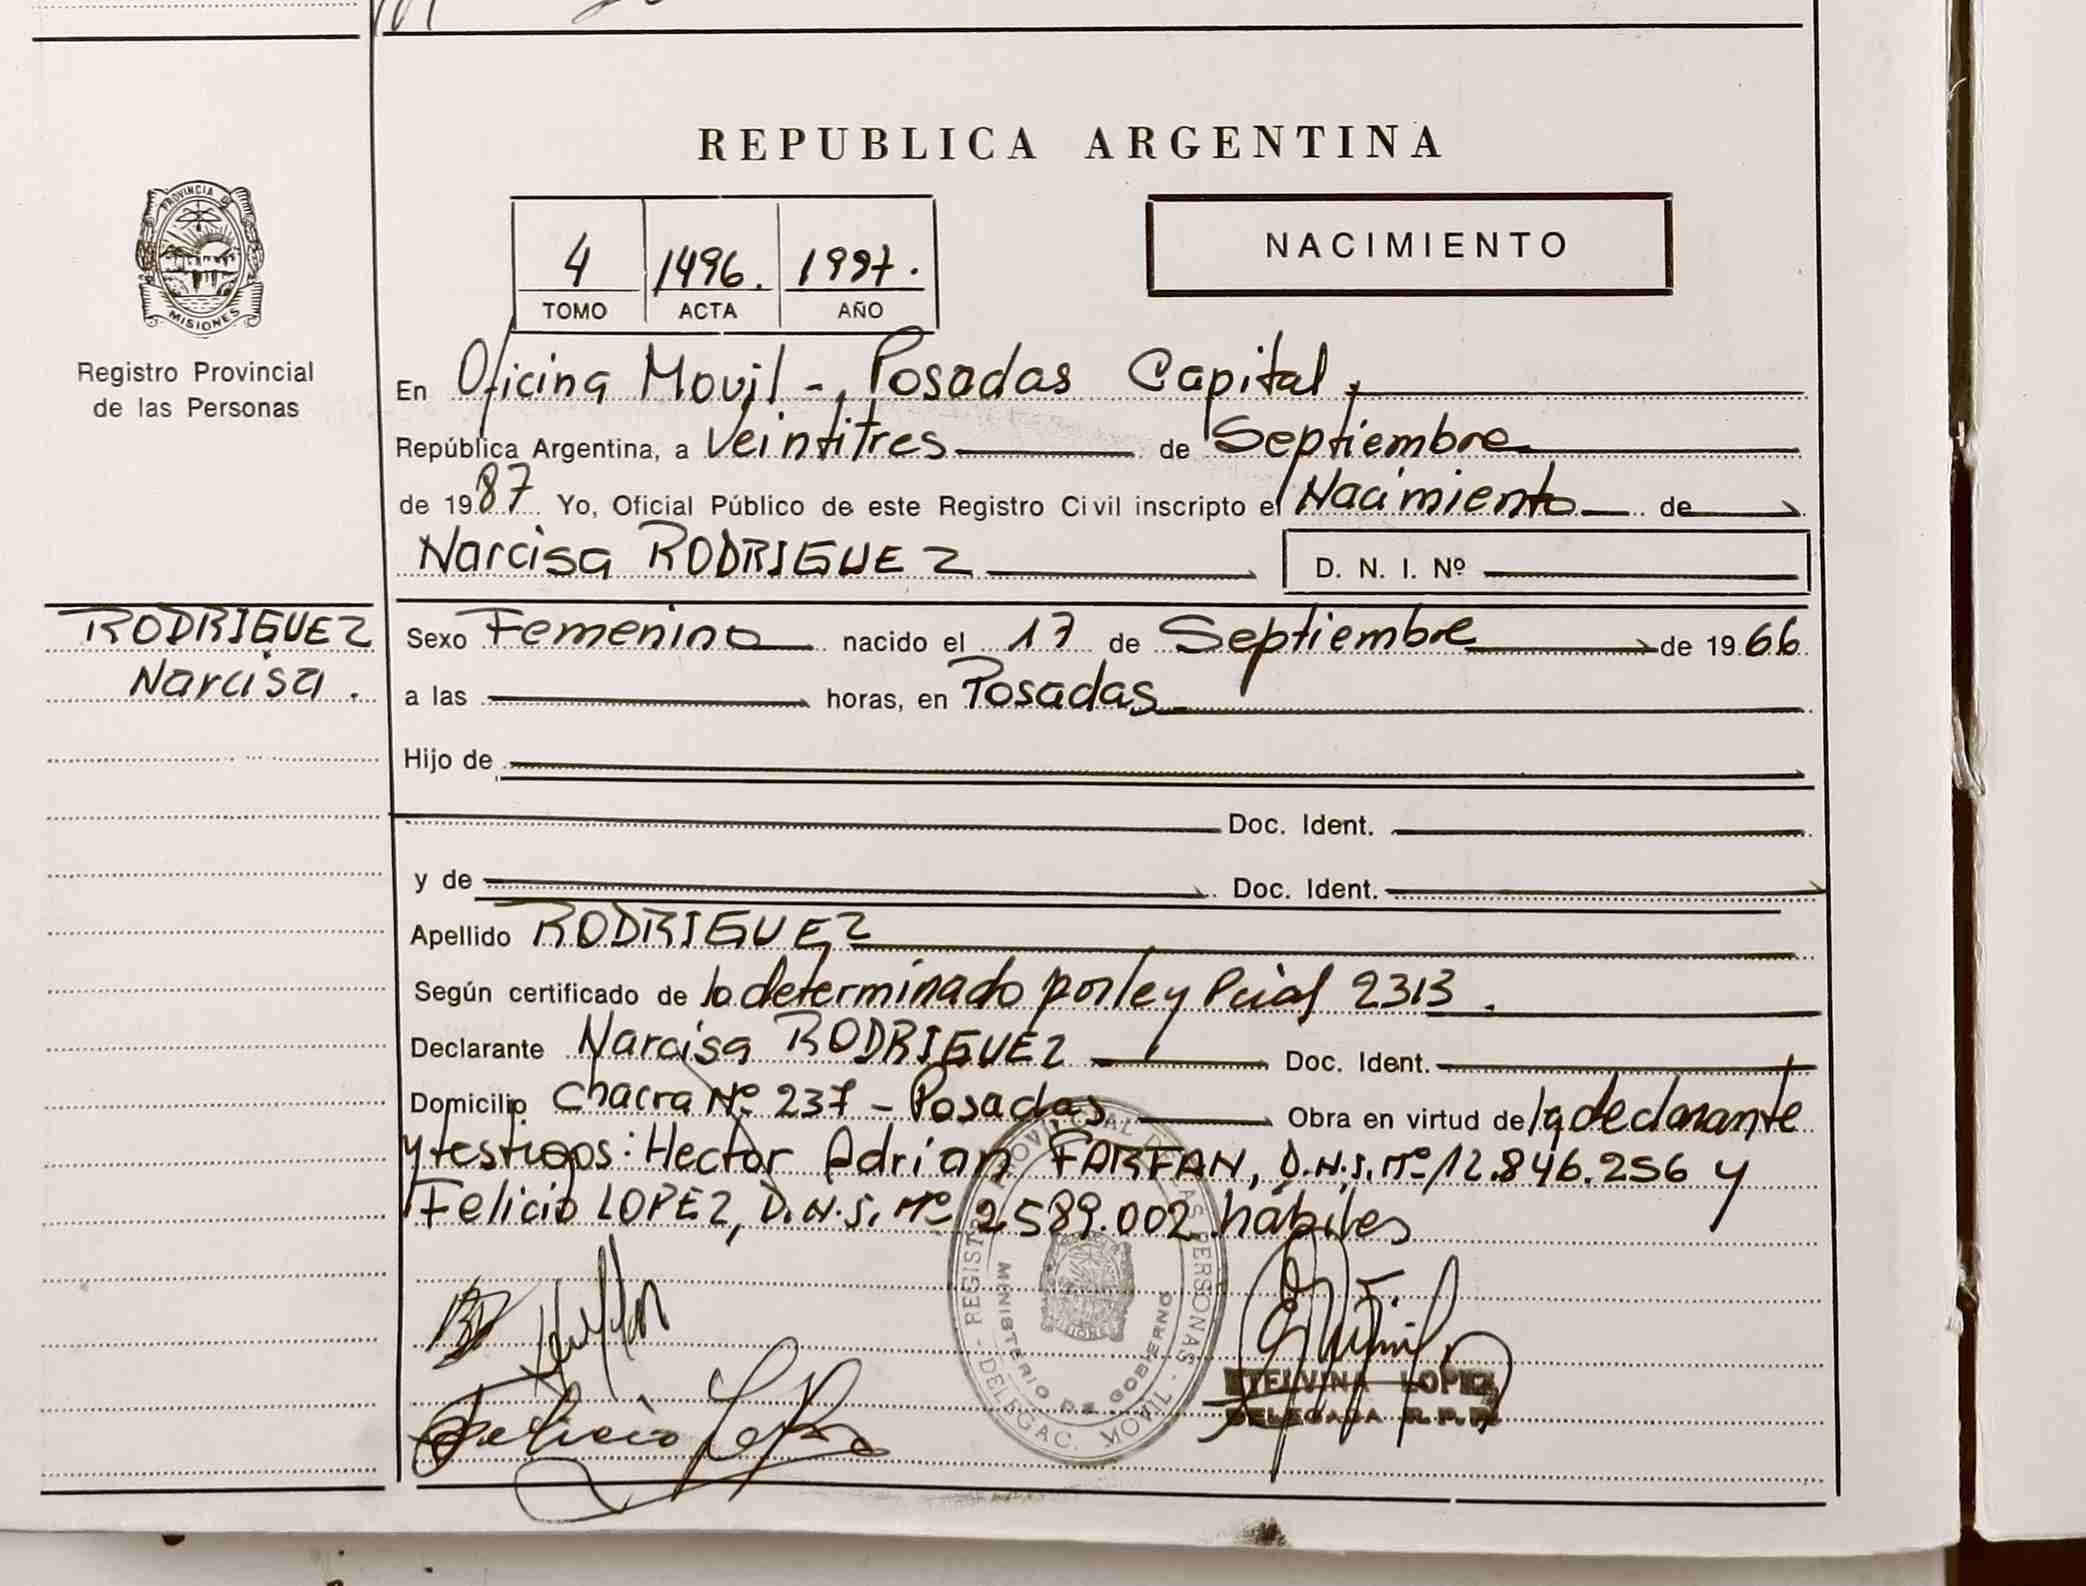 REPUBLICA ARGENTINA
PROVINCIA DE
MISIONES
Registro Provincial
de las Personas
4 1496. 1997.
TOMO ACTA AÑO
NACIMIENTO
En Oficina Movil -, Posadas Capital,
República Argentina, a Veintitres de Septiembre
de 1987 Yo, Oficial Público de este Registro Civil inscripto el Nacimiento de
Narcisa RODRIGUEZ D. N. I. Nº
RODRIGUEZ
Narcisa.
Sexo Femenino nacido el 17 de Septiembre de 1966
a las horas, en Posadas
Hijo de
Doc. Ident.
y de Doc. Ident.
Apellido RODRIGUEZ
Según certificado de lo determinado por ley Pcial 2313.
Declarante Narcisa RODRIGUEZ Doc. Ident.
Domicilio Chacra Nº 237 - Posadas Obra en virtud de la declarante
y testigos: Hector Adrian FARFAN, D.N.I. Nº 12.846.256 y
Felicio LOPEZ, D.N.I. Nº 2589.002 hábiles
REGISTRO PROVINCIAL DE LAS PERSONAS
MINISTERIO DE GOBIERNO
DELEGAC. MOVIL
Felicio Lopez
ETELVINA LOPEZ
DELEGADA R.P.P.